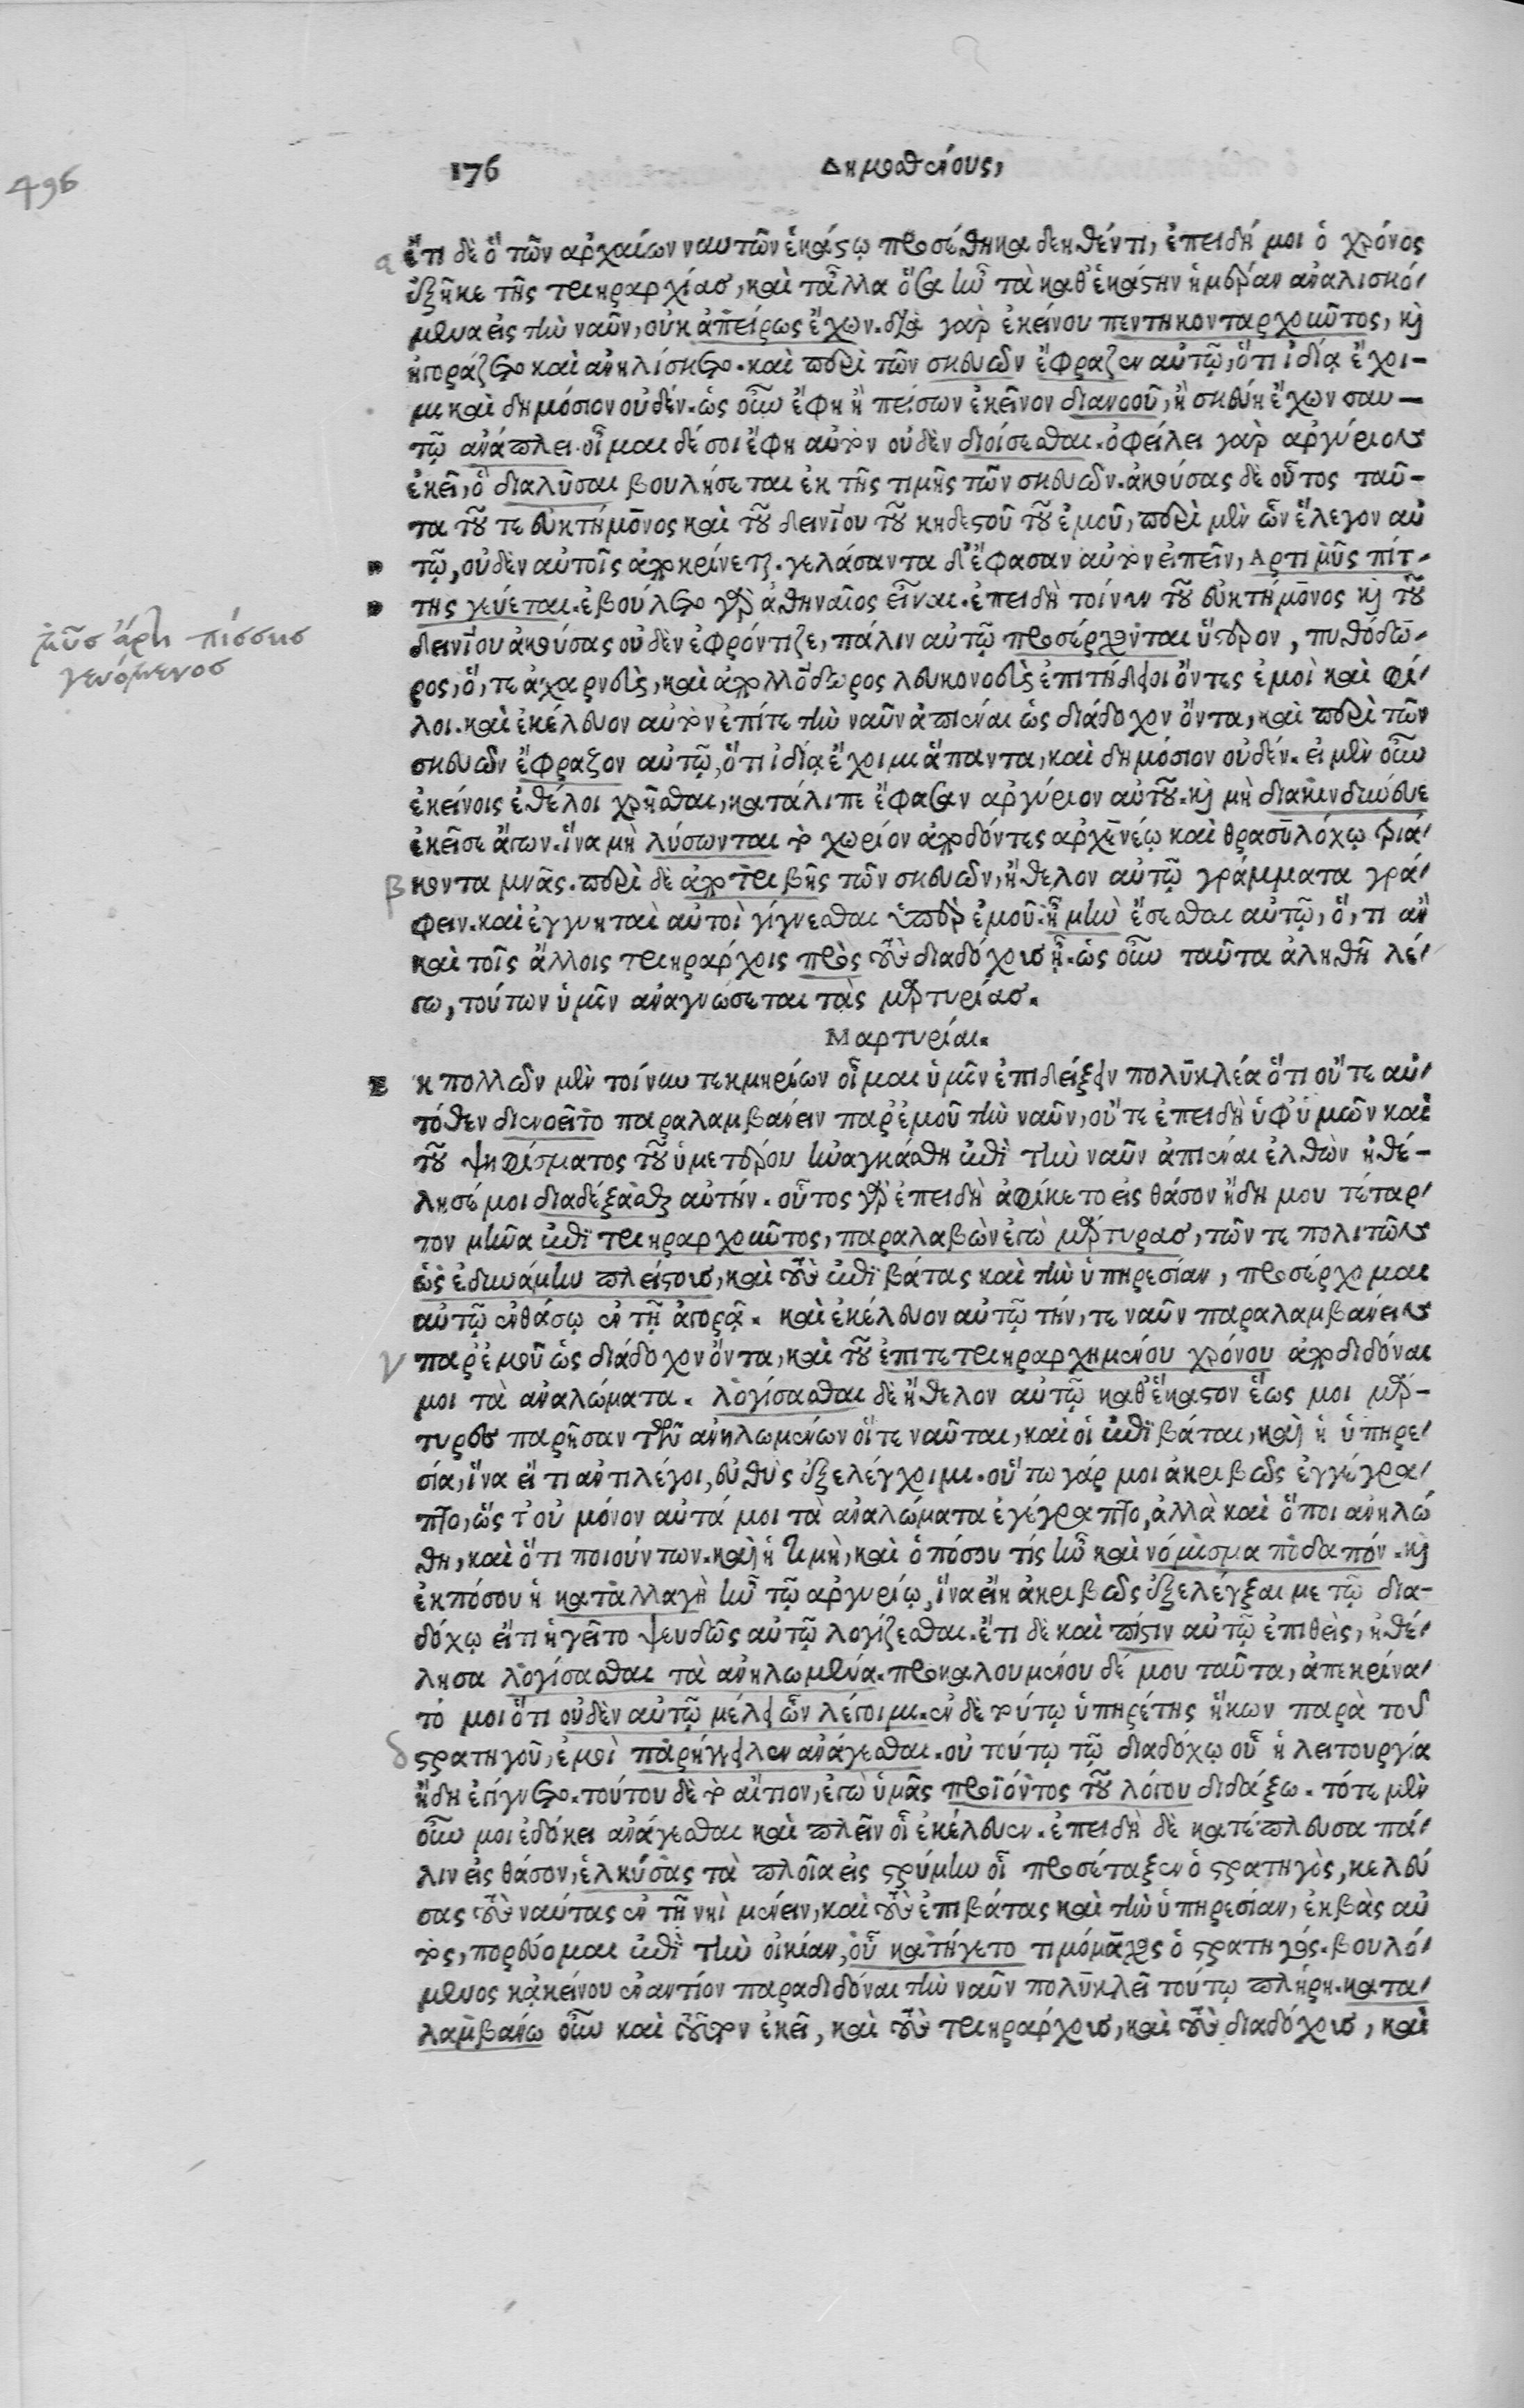 496
176 Δημοσθένους,
α ἔτι δὲ ὃ τῶν ἀρχαίων ναυτῶν ἑκάστῳ προσέθηκα δεηθέντι, ἐπειδή μοι ὁ χρόνος
ἐξῆκε τῆς τριηραρχίας, καὶ τἆλλα ὅσα ἦν τὰ καθ' ἑκάστην ἡμέραν ἀναλισκό-
μενα εἰς τὴν ναῦν, οὐκ ἀπείρως ἔχων. διὰ γὰρ ἐκείνου πεντηκονταρχοῦντος, καὶ
ἠγοράζετο καὶ ἀνηλίσκετο. καὶ περὶ τῶν σκευῶν ἔφραζεν αὐτῷ, ὅτι ἰδίᾳ ἔχοι-
μι καὶ δημόσιον οὐδέν. ὡς οὖν ἔφη ἢ πείσων ἐκεῖνον διανοοῦ, ἢ σκεύη ἔχων σαυ-
τῷ ἀνάπλει. οἶμαι δέ σοι ἔφη αὐτὸν οὐδὲν διοίσεσθαι. ὀφείλει γὰρ ἀργύριον
ἐκεῖ, ὃ διαλῦσαι βουλήσεται ἐκ τῆς τιμῆς τῶν σκευῶν. ἀκούσας δὲ οὗτος ταῦ-
τα τοῦ τε εὐκτήμονος καὶ τοῦ δεινίου τοῦ κηδεστοῦ τοῦ ἐμοῦ, περὶ μὲν ὧν ἔλεγον αὐ
τῷ, οὐδὲν αὐτοῖς ἀποκρίνεται. γελάσαντα δ' ἔφασαν αὐτὸν εἰπεῖν, Αρτι μῦς πίτ-
της γεύεται. ἐβούλετο γὰρ ἀθηναῖος εἶναι. ἐπειδὴ τοίνυν τοῦ εὐκτήμονος καὶ τοῦ
μῦσ ἄρτι πίσσησ
γευόμενοσ
δεινίου ἀκούσας οὐδὲν ἐφρόντιζε, πάλιν αὐτῷ προσέρχονται ὕστερον, πυθόδω-
ρος, ὅ, τε ἀχαρνεὺς, καὶ ἀπολλόδωρος λευκονοεὺς ἐπιτήδειοι ὄντες ἐμοὶ καὶ φί-
λοι. καὶ ἐκέλευον αὐτὸν ἐπί τε τὴν ναῦν ἀπιέναι ὡς διάδοχον ὄντα, καὶ περὶ τῶν
σκευῶν ἔφραζον αὐτῷ, ὅτι ἰδίᾳ ἔχοιμι ἅπαντα, καὶ δημόσιον οὐδέν. εἰ μὲν οὖν
ἐκείνοις ἐθέλοι χρῆσθαι, κατάλιπε ἔφασαν ἀργύριον αὐτοῦ. καὶ μὴ διακινδύνευε
ἐκεῖσε ἄγων. ἵνα μὴ λύσωνται τὸ χωρίον ἀποδόντες ἀρχένεῳ καὶ θρασυλόχῳ τριά-
β κοντα μνᾶς. περὶ δὲ ἀποτριβῆς τῶν σκευῶν, ἤθελον αὐτῷ γράμματα γρά-
φειν. καὶ ἐγγυηταὶ αὐτοὶ γίγνεσθαι ὑπὲρ ἐμοῦ. ἦ μὴν ἔσεσθαι αὐτῷ, ὅ, τι ἂν
καὶ τοῖς ἄλλοις τριηράρχοις πρὸς τοὺς διαδόχους ᾖ. ὡς οὖν ταῦτα ἀληθῆ λέ-
γω, τούτων ὑμῖν ἀναγνώσεται τὰς μαρτυρίας.
Μαρτυρίαι.
Ε κ πολλῶν μὲν τοίνυν τεκμηρίων οἶμαι ὑμῖν ἐπιδείξειν πολυκλέα ὅτι οὔτε αὐ-
τόθεν διενοεῖτο παραλαμβάνειν παρ' ἐμοῦ τὴν ναῦν, οὔτε ἐπειδὴ ὑφ' ὑμῶν καὶ
τοῦ ψηφίσματος τοῦ ὑμετέρου ἠναγκάσθη ἐπὶ τὴν ναῦν ἀπιέναι ἐλθὼν ἠθέ-
λησέ μοι διαδέξασθαι αὐτήν. οὗτος γὰρ ἐπειδὴ ἀφίκετο εἰς θάσον ἤδη μου τέταρ-
τον μῆνα ἐπιτριηραρχοῦντος, παραλαβὼν ἐγὼ μάρτυρας, τῶν τε πολιτῶν
ὡς ἐδυνάμην πλείστους, καὶ τοὺς ἐπιβάτας καὶ τὴν ὑπηρεσίαν, προσέρχομαι
αὐτῷ ἐν θάσῳ ἐν τῇ ἀγορᾷ. καὶ ἐκέλευον αὐτῷ τήν, τε ναῦν παραλαμβάνειν
γ παρ' ἐμοῦ ὡς διάδοχον ὄντα, καὶ τοῦ ἐπιτετριηραρχημένου χρόνου ἀποδιδόναι
μοι τὰ ἀναλώματα. λογίσασθαι δὲ ἤθελον αὐτῷ καθ' ἕκαστον ἕως μοι μάρ-
τυρες παρῆσαν τῶν ἀνηλωμένων οἵ τε ναῦται, καὶ οἱ ἐπιβάται, καὶ ἡ ὑπηρε-
σία, ἵνα εἴ τι ἀντιλέγοι, εὐθὺς ἐξελέγχοιμι. οὕτω γάρ μοι ἀκριβῶς ἐγγέγρα-
πτο, ὥς τ' οὐ μόνον αὐτά μοι τὰ ἀναλώματα ἐγέγραπτο, ἀλλὰ καὶ ὅποι ἀνηλώ
θη, καὶ ὅτι ποιούντων. καὶ ἡ τιμὴ, καὶ ὁπόσου τίς ἦν καὶ νόμισμα ποδαπόν. καὶ
ἐκπόσου ἡ καταλλαγὴ ἦν τῷ ἀργυρίῳ, ἵνα εἴη ἀκριβῶς ἐξελέγξαι με τῷ δια-
δόχῳ εἴ τι ἡγεῖτο ψευδῶς αὐτῷ λογίζεσθαι. ἔτι δὲ καὶ πίστιν αὐτῷ ἐπιθεὶς, ἠθέ-
λησα λογίσασθαι τὰ ἀνηλωμένα. προκαλουμένου δέ μου ταῦτα, ἀπεκρίνα-
τό μοι ὅτι οὐδὲν αὐτῷ μέλει ὧν λέγοιμι. ἐν δὲ τούτῳ ὑπηρέτης ἥκων παρὰ τοῦ
δ στρατηγοῦ, ἐμοὶ παρήγγειλεν ἀνάγεσθαι. οὐ τούτῳ τῷ διαδόχῳ οὗ ἡ λειτουργία
ἤδη ἐγίγνετο. τούτου δὲ τὸ αἴτιον, ἐγὼ ὑμᾶς προϊόντος τοῦ λόγου διδάξω. τότε μὲν
οὖν μοι ἐδόκει ἀνάγεσθαι καὶ πλεῖν οἷ ἐκέλευεν. ἐπειδὴ δὲ κατέπλευσα πά-
λιν εἰς θάσον, ἑλκύσας τὰ πλοῖα εἰς στρύμην οἷ προσέταξεν ὁ στρατηγὸς, κελεύ
σας τοὺς ναύτας ἐν τῇ νηὶ μένειν, καὶ τοὺς ἐπιβάτας καὶ τὴν ὑπηρεσίαν, ἐκβὰς αὐ
τὸς, πορεύομαι ἐπὶ τὴν οἰκίαν, οὗ κατήγετο τιμόμαχος ὁ στρατηγός. βουλό-
μενος κἀκείνου ἐναντίον παραδιδόναι τὴν ναῦν πολυκλεῖ τούτῳ πλήρη. κατα-
λαμβάνω οὖν καὶ τοῦτον ἐκεῖ, καὶ τοὺς τριηράρχους, καὶ τοὺς διαδόχους, καὶ